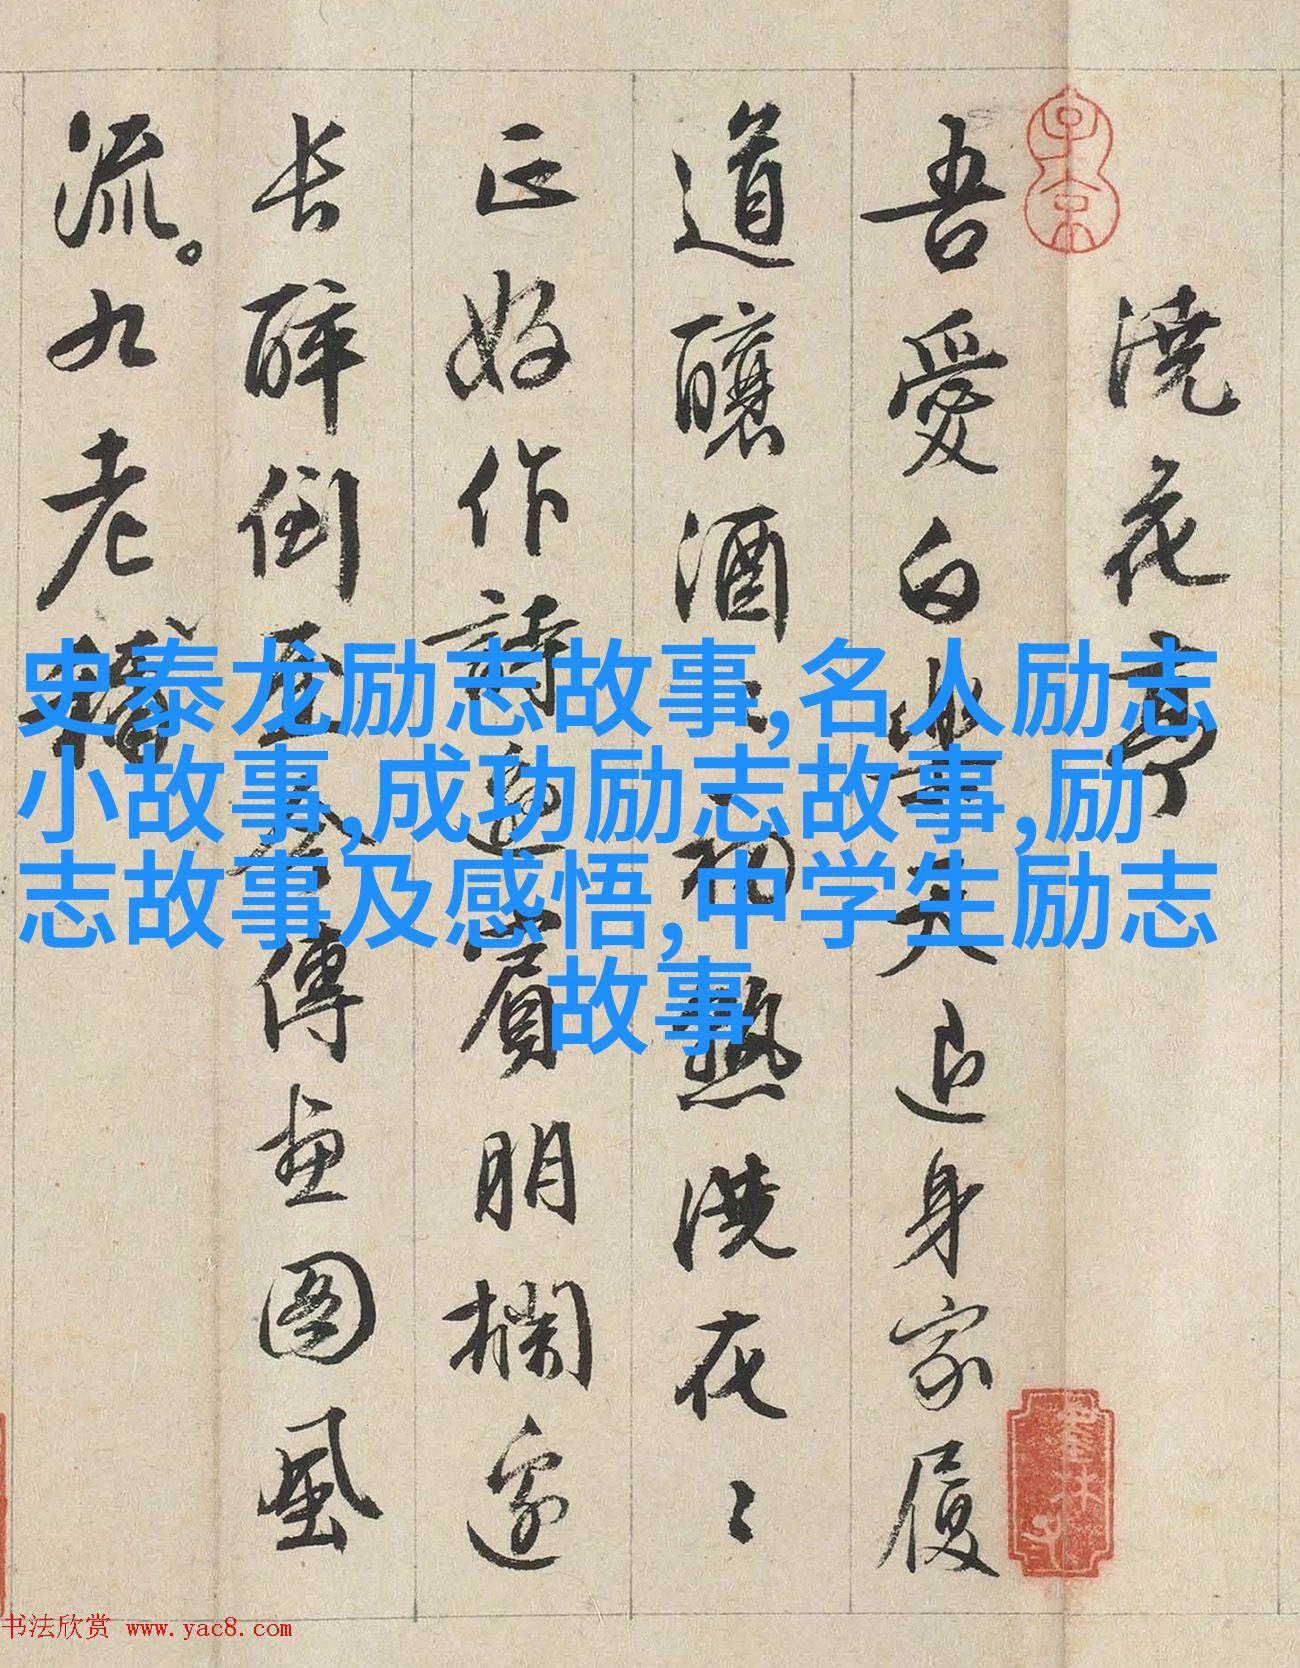 澆花亭
吾愛白樂天退身家履
道釀酒〻初熟澆花〻
正好作詩邀賓朋欄邊
长醉倒至今傳畫圖風
流。九老
史泰龙励志故事,名人励志
小故事,成功励志故事,励
志故事及感悟,中学生励志
故事
书法欣赏 www.yac8.com